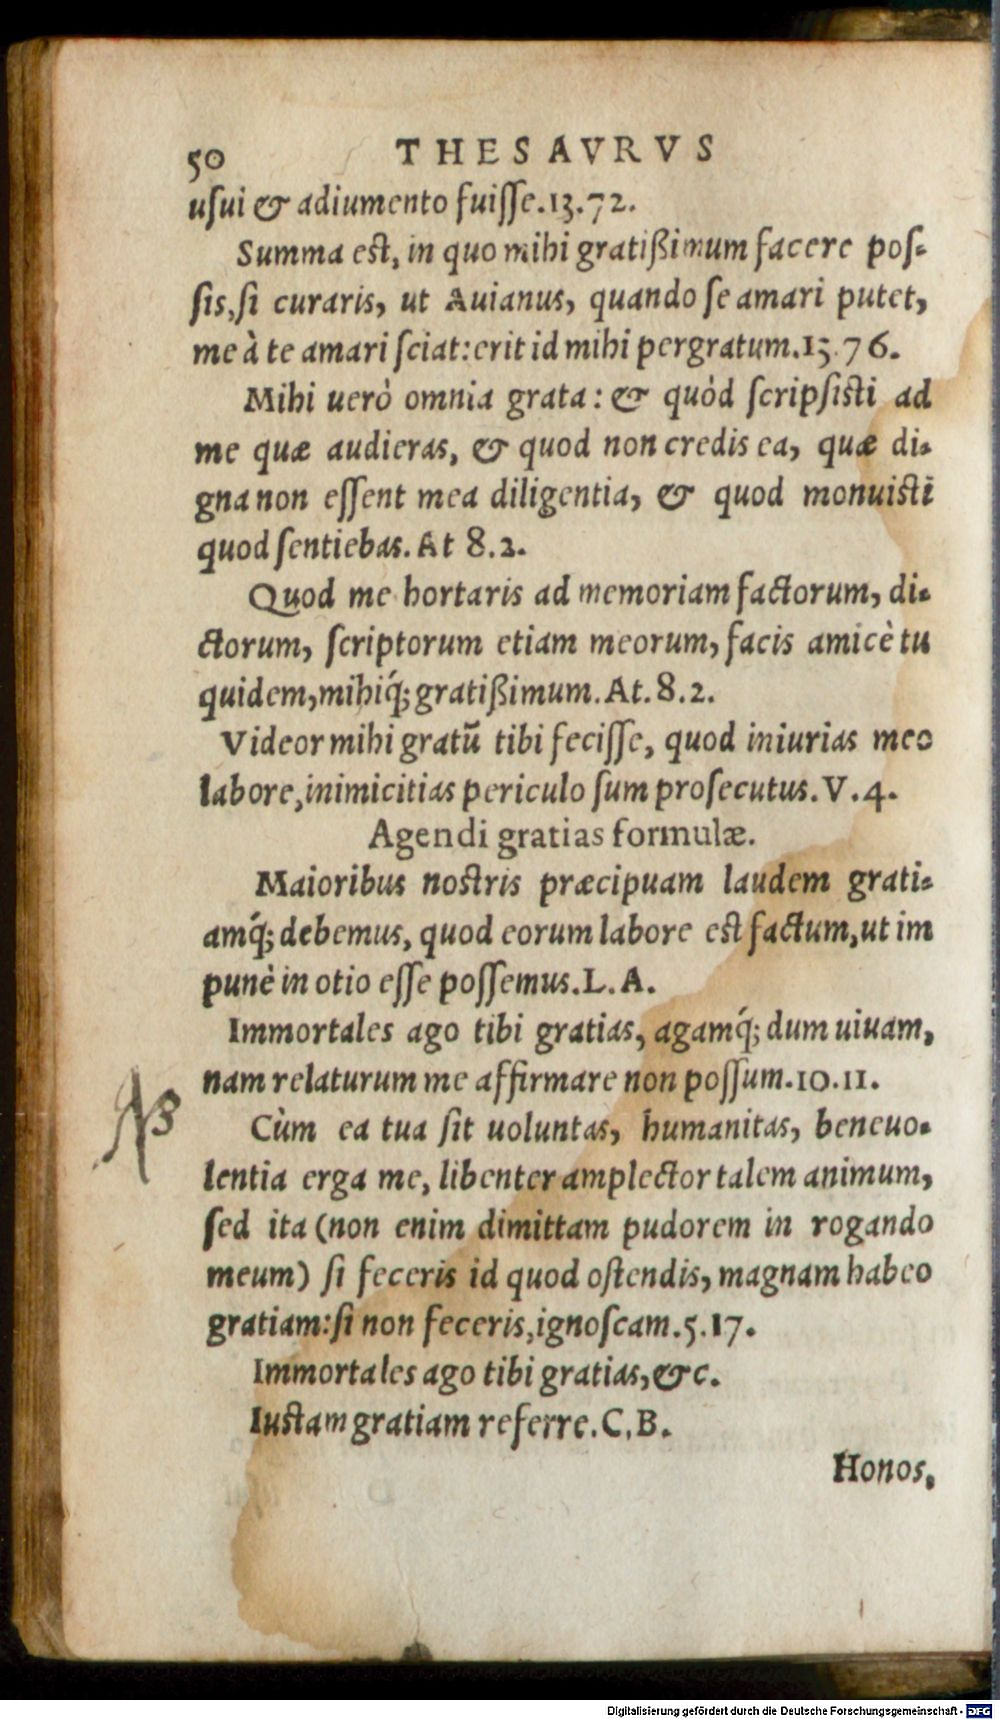 50 THESAVRVS
usui & adiumento fuisse.13.72.
Summa est, in quo mihi gratißimum facere pos-
sis, si curaris, ut Auianus, quando se amari putet,
me à te amari sciat: erit id mihi pergratum.13.76.
Mihi uerò omnia grata: & quòd scripsisti ad
me quæ audieras, & quod non credis ea, quæ di-
gna non essent mea diligentia, & quod monuisti
quod sentiebas. At 8.2.
Quod me hortaris ad memoriam factorum, di-
ctorum, scriptorum etiam meorum, facis amicè tu
quidem, mihiq́; gratißimum. At. 8.2.
Videor mihi gratũ tibi fecisse, quod iniurias meo
labore, inimicitias periculo sum prosecutus. V. 4.
Agendi gratias formulæ.
Maioribus nostris præcipuam laudem grati-
amq́; debemus, quod eorum labore est factum, ut im
punè in otio esse possemus. L. A.
Immortales ago tibi gratias, agamq́; dum uiuam,
nam relaturum me affirmare non possum.10.11.
NB
Cùm ea tua sit uoluntas, humanitas, beneuo-
lentia erga me, libenter amplector talem animum,
sed ita (non enim dimittam pudorem in rogando
meum) si feceris id quod ostendis, magnam habeo
gratiam: si non feceris, ignoscam.5.17.
Immortales ago tibi gratias, &c.
Iustam gratiam referre. C. B.
Honos,
Digitalisierung gefördert durch die Deutsche Forschungsgemeinschaft - DFG